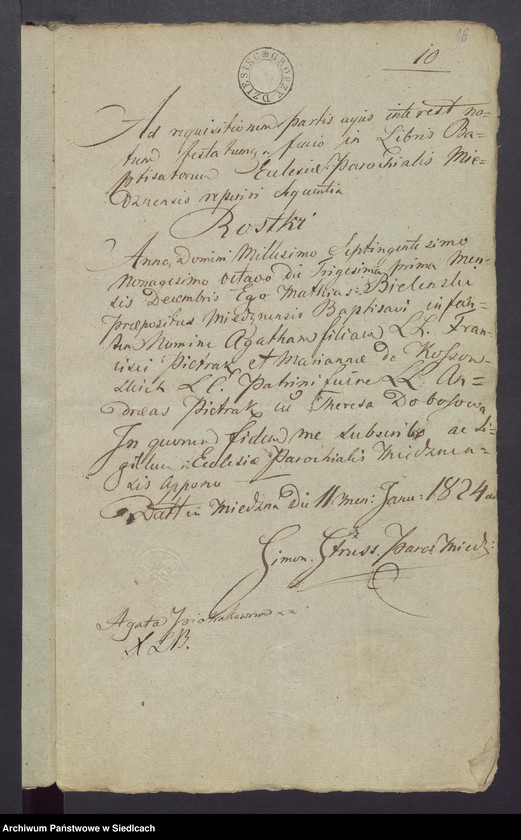 16
10
DZIESIĘC GROSZY
Ad requisitionem partis cujus interest no=
tum testatumq. facio in Libris Ba=
ptisatorum Eclesiæ Parochialis Mie=
dznensis reperiri sequentia
Rostki
Anno Domini Millesimo Septingentesimo
Nonagesimo octavo die Trigesima prima Men=
sis Decembris Ego Mathias Bielenski
Præpositus Miedznensis Baptisavi infan=
tem Nomine Agatham filiam LL. Fran=
cisci Pietrak et Mariannæ de Kossow=
skich LC. Patrini fuere LL. An=
dreas Pietrak cu Theresa Dobosowa
In quorum fidem me subscribo ac Si=
gillum Eclesiæ Parochialis Miedznen=
sis appono
Datt in Miedzna Die 11 men: Janu: 1824
Simon Struss. Paro: Miedz:
Agata
X LB.
Archiwum Państwowe w Siedlcach